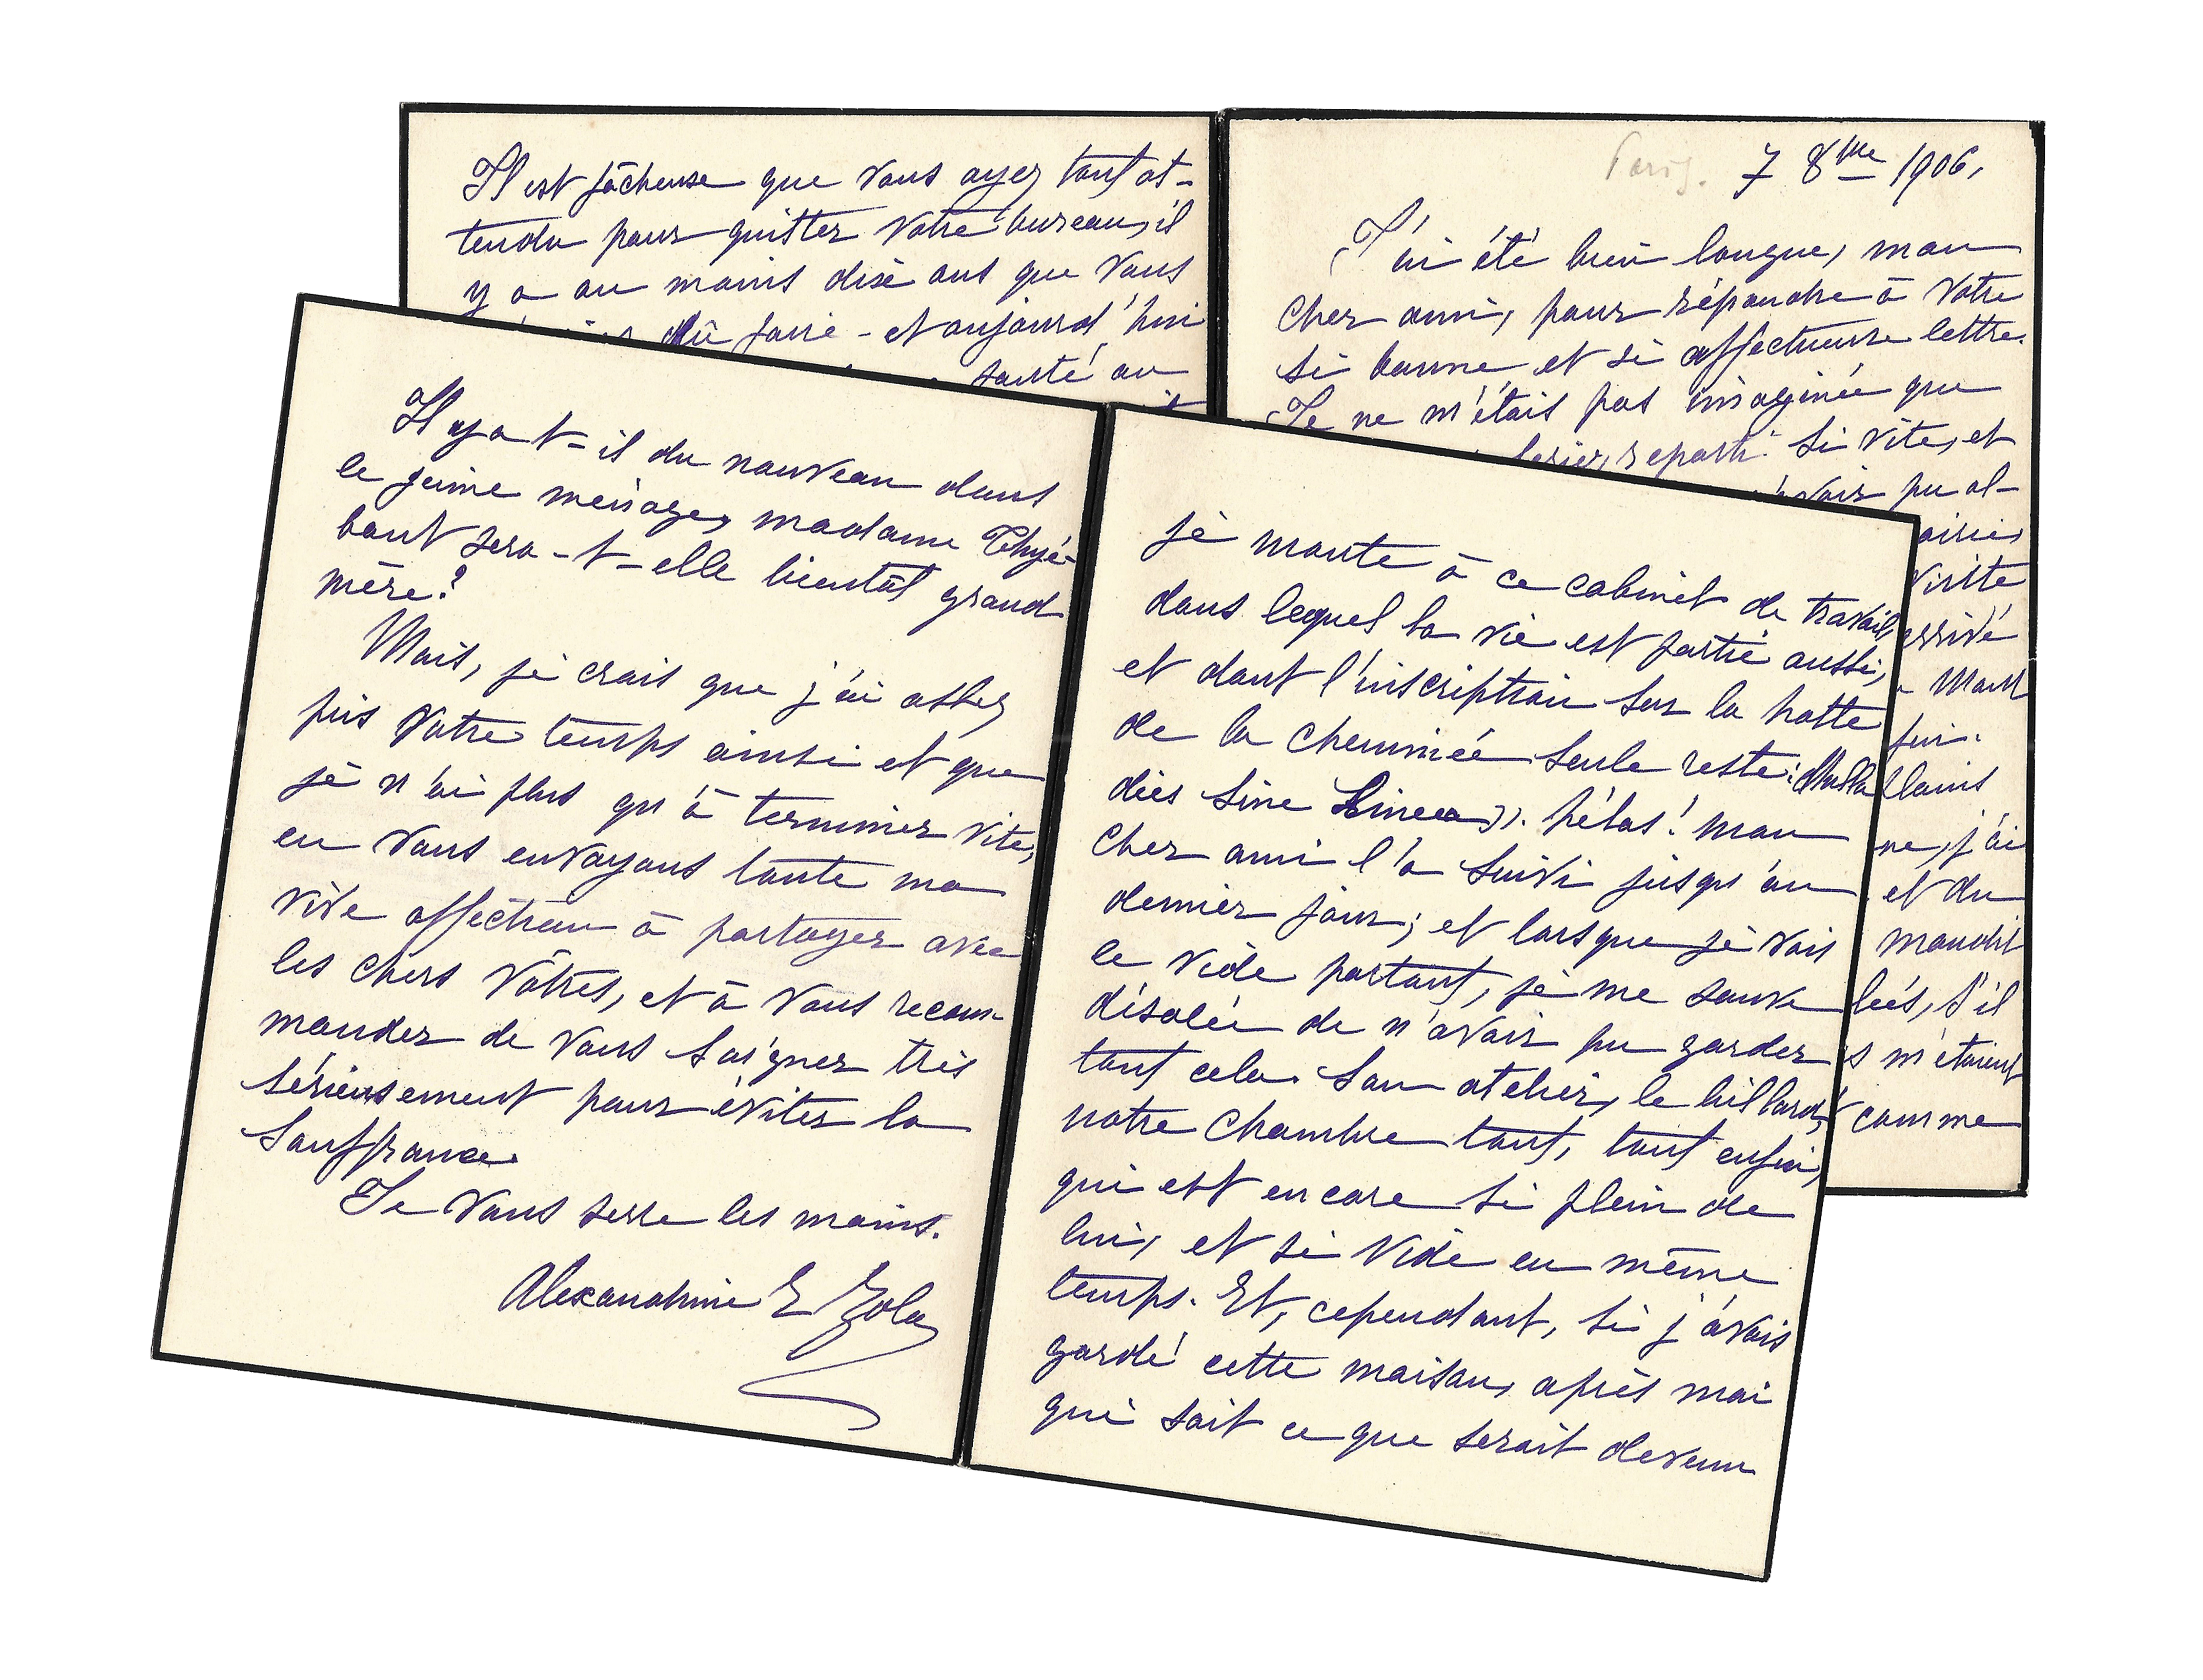 Paris. 7 8bre 1906.
J'ai été bien longue, mon
cher ami, pour répondre à votre
si bonne et si affectueuse lettre.
Je ne m'étais pas imaginée que
reparti si vite, et
avoir pu al-
visite
arrivé
fin.
j'ai
et du
maudit
s'il
m'étaient
comme
Il est fâcheuse que vous ayez tant at-
tendu pour quitter votre bureau, il
y a au moins dix ans que vous
dû faire - et aujourd'hui
santé au
je monte à ce cabinet de travail,
dans lequel la vie est partie aussi,
et dont l'inscription sur la hotte
de la cheminée seule reste: «Nulla
dies sine Linea». hélas! mon
cher ami l'a suivi jusqu'au
dernier jour; et lorsque je vois
le vide partout, je me sauve
désolée de n'avoir pu garder
tout cela. Son atelier, le billard,
notre chambre tout, tout enfin,
qui est encore si plein de
lui, et si vide en même
temps. Et, cependant, si j'avais
gardé cette maison, après moi
qui sait ce que serait devenu
Il y a t-il du nouveau dans
le jeune ménage, madame Thyé-
baut sera-t-elle bientôt grand
mère?
Mais, je crois que j'ai assez
pris votre temps ainsi et que
je n'ai plus qu'à terminer vite,
en vous envoyant toute ma
vive affection à partager avec
les chers vôtres, et à vous recom-
mander de vous soigner très
sérieusement pour éviter la
souffrance.
Je vous serre les mains.
Alexandrine E Zola